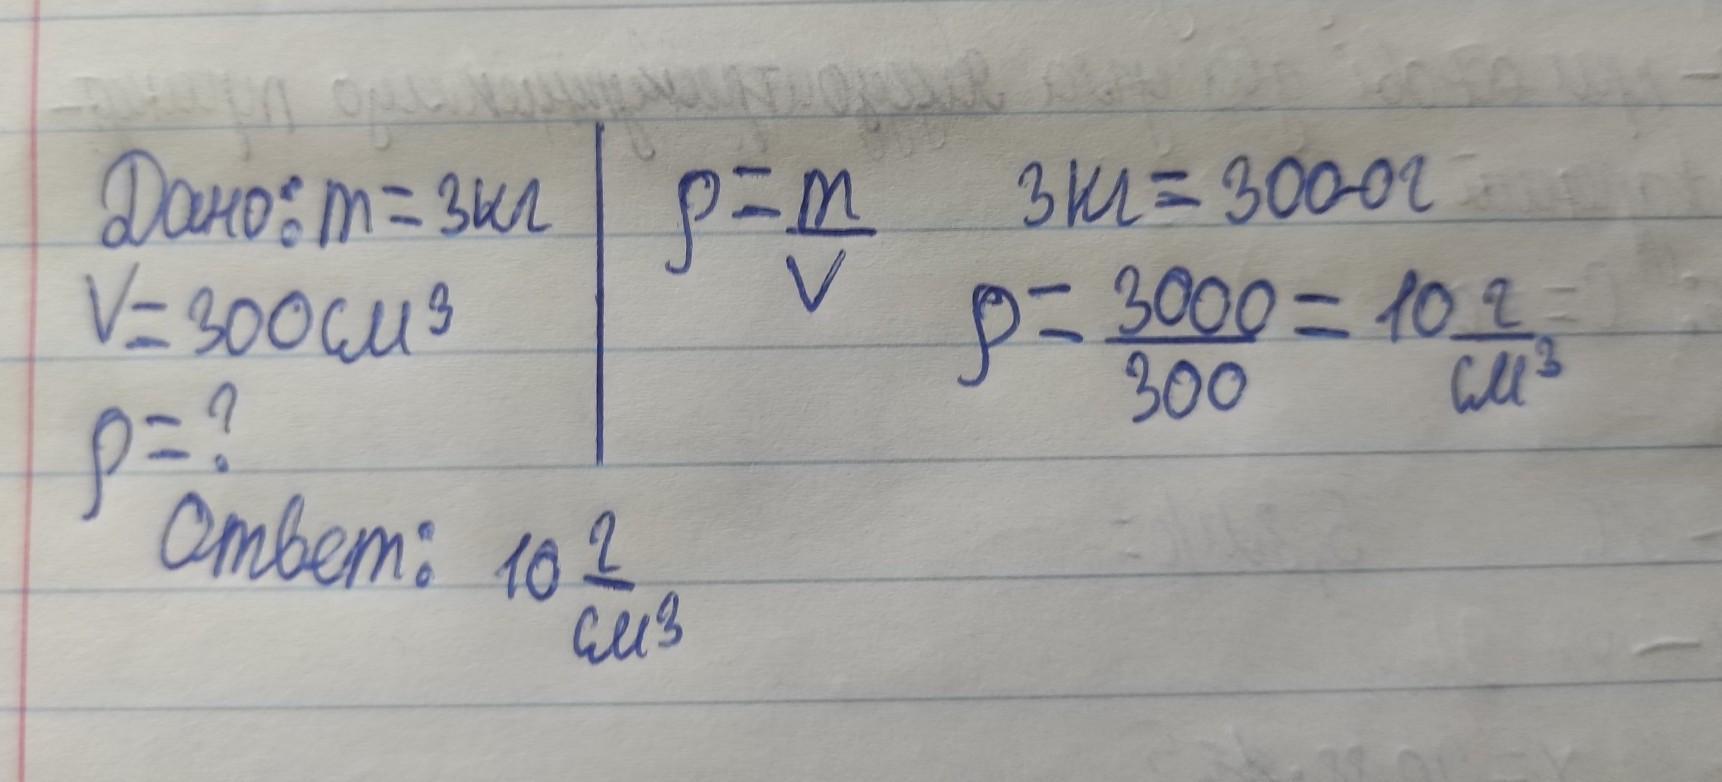 Дано: m = 3кг
V = 300 см³
ρ = ?
ρ = m/V
3кг = 3000г
ρ = 3000/300 = 10 г/см³
Ответ: 10 г/см³